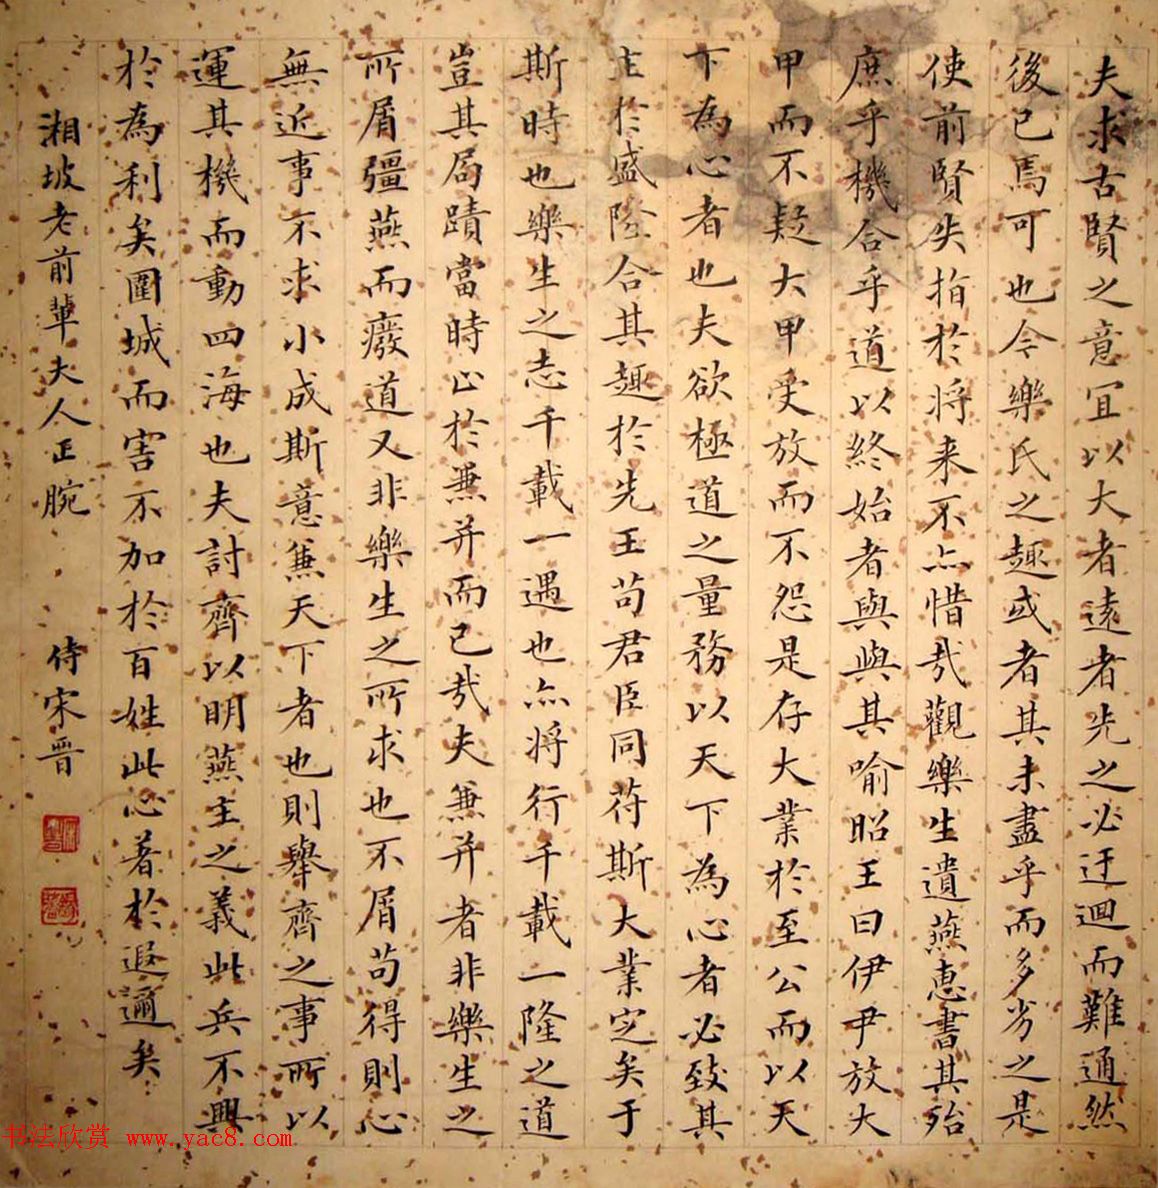 夫求古賢之意宜以大者遠者先之必迂迴而難通然
後已焉可也今樂氏之趣或者其未盡乎而多劣之是
使前賢失指於將来不亦惜哉觀樂生遺燕惠書其殆
庶乎機合乎道以終始者與與其喻昭王曰伊尹放大
甲而不疑大甲受放而不怨是存大業於至公而以天
下為心者也夫欲極道之量務以天下為心者必致其
主於盛隆合其趣於先王苟君臣同苻斯大業定矣于
斯時也樂生之志千載一遇也亦將行千載一隆之道
豈其局蹟當時止於兼并而已哉夫兼并者非樂生之
所屑彊燕而癈道又非樂生之所求也不屑苟得則心
無近事不求小成斯意兼天下者也則舉齊之事所以
運其機而動四海也夫討齊以明燕主之義此兵不興
於為利矣圍城而害不加於百姓此心著於遐邇矣
湘坡老前輩夫人正腕 侍宋晋
书法欣赏 www.yac8.com